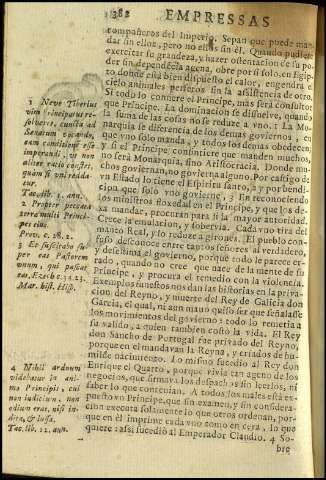 382 EMPRESSAS
compañeros del Imperio. Sepan que puede man-
dar sin ellos, pero no ellos sin él. Quando pudiere
exercitar su grandeza, y hazer ostentacion de su po-
der sin dependecia agena, obre por si solo. en Egip-
to, donde está bien dispuesto el calor, engendra el
cielo animales perfetos sin la assistencia de otro.
Si todo lo confiere el Principe, mas será consultor
que Principe. La dominacion se disuelve, quando
la suma de las cosas no se reduce a vno. 1 La Mo-
narquia se diferencia de los demas goviernos, en
que vno solo manda, y todos los demas obedecen
y si el Principe consintiere que manden muchos,
no será Monarquia, sino Aristocracia. Donde mu-
chos goviernan, no govierna alguno. Por castigo de
vn Estado lo tiene el Espiritu santo, 2 y por bendi-
cion que solo vno govierne, 3 En reconociendo
los ministros floxedad en el Principe, y que los de-
xa mandar, procuran para si la mayor autoridad.
Crece la emulacion, y sobervia. Cada vno tira del
manto Real, y lo reduce a girones. El pueblo con-
fuso desconoce entre tantos señores al verdadero,
y desestima el govierno, porque todo le parece er-
rado, quando no cree que nace de la mente de su
Principe, y procura el remedio con la violencia.
Exemplos funestos nos dan las historias en la priva-
cion del Reyno, y muerte del Rey de Galicia don
Garcia, el qual, ni aun mano quiso ser que señalasse
los movimientos del govierno: todo lo remetia a
su valido, a quien tambien costò la vida. El Rey
don Sancho de Portugal fue privado del Reyno,
porque en el mandavan la Reyna, y criados de hu-
milde nacimiento. Lo mismo sucediò al Rey don
Enrique el Quarto, porque vivia tan ageno de los
negocios, que firmava los despachos sin leerlos, ni
saber lo que contenian. A todos los males está ex-
puesto vn Principe, que sin examen, y sin considera-
cion executa solamente lo que otros ordenan, por-
que en él imprime cada vno como en cera, lo que
quiere: assi sucediò al Emperador Claudio. 4 So-
bre
1 Neve Tiberius
vim principatus re-
solveret, cuncta ad
Senatum vocando,
eam conditionem esse
imperandi, vt non
aliter ratio constet,
quam si vni redda-
tur.
Tac. lib. 1. ann.
2 Propter peccata
terra multi Princi-
pes eius.
Prov. c. 28. 2.
3 Et suscitabo su-
per eas Pastorem
vnum, qui pascat
eas. Ezech. c. 34. 23.
Mar. hist. Hisp.
4 Nihil arduum
videbatur in ani-
mo Principis, cui
non iudicium, non
odium erat, nisi in-
dita, & iussa.
Tac. lib. 12. ann.